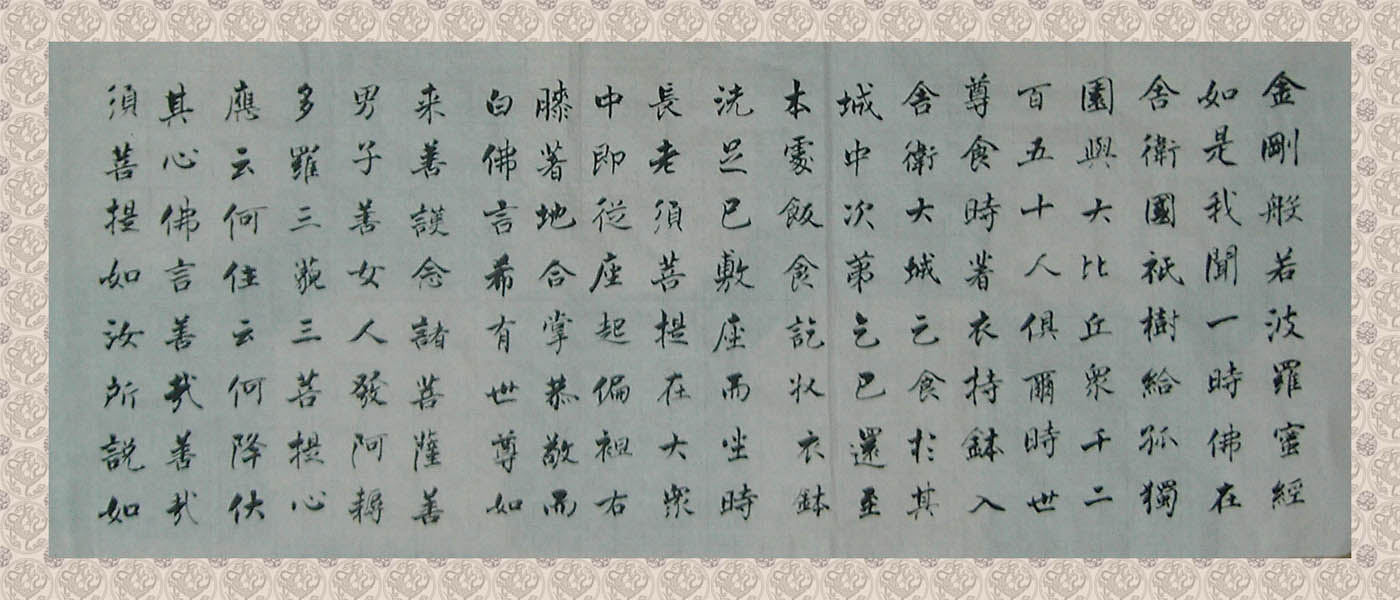 金剛般若波羅蜜經
如是我聞一時佛在
舍衛國祇樹給孤獨
園與大比丘衆千二
百五十人俱爾時世
尊食時著衣持鉢入
舍衛大城乞食於其
城中次第乞已還至
本處飯食訖收衣鉢
洗足已敷座而坐時
長老須菩提在大衆
中即從座起偏袒右
膝著地合掌恭敬而
白佛言希有世尊如
来善護念諸菩薩善
男子善女人發阿耨
多羅三藐三菩提心
應云何住云何降伏
其心佛言善哉善哉
須菩提如汝所説如